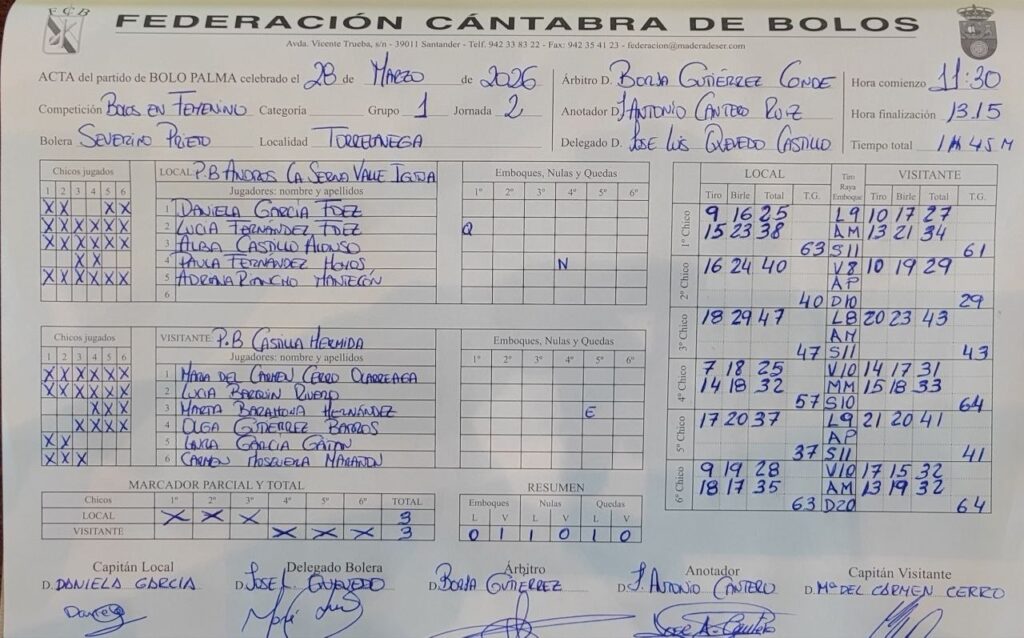 FCB
FEDERACIÓN CÁNTABRA DE BOLOS
Avda. Vicente Trueba, s/n - 39011 Santander - Telf. 942 33 83 22 - Fax: 942 35 41 23 - federacion@maderadeser.com
ACTA del partido de BOLO PALMA celebrado el 28 de MARZO de 2026
Competición BOLOS EN FEMENINO Categoría Grupo 1 Jornada 2
Bolera SEVERINO PRIETO Localidad TORRELAVEGA
Árbitro D. BORJA GUTIÉRREZ CONDE
Anotador D. J. ANTONIO CANTERO RUIZ
Delegado D. JOSE LUIS QUEVEDO CASTILLO
Hora comienzo 11:30
Hora finalización 13.15
Tiempo total 1H 45 M
Chicos jugados LOCAL: P.B ANDROS LA SERNA VALLE IGUÑA Emboques, Nulas y Quedas
1 2 3 4 5 6 Jugadores: nombre y apellidos 1º 2º 3º 4º 5º 6º
X X X X 1 DANIELA GARCÍA FDEZ
X X X X X X 2 LUCIA FERNÁNDEZ FDEZ Q
X X X X X X 3 ALBA CASTILLO ALONSO
X X 4 PAULA FERNÁNDEZ HOYOS N
X X X X X X 5 ADRIANA RIANCHO MANTECÓN
6
Chicos jugados VISITANTE: P.B CASTILLA HERMIDA Emboques, Nulas y Quedas
1 2 3 4 5 6 Jugadores: nombre y apellidos 1º 2º 3º 4º 5º 6º
X X X X X X 1 MARIA DEL CARMEN CERRO OLARREAGA
X X X X X X 2 LUCIA BARQUIN RIVERO
X X X 3 MARTA BARAHONA HERNÁNDEZ E
X X X X 4 OLGA GUTIERREZ BARROS
X X 5 LAURA GARCIA GAITAN
X X X 6 CARMEN MOSQUERA MARAÑON
MARCADOR PARCIAL Y TOTAL
Chicos 1º 2º 3º 4º 5º 6º TOTAL
LOCAL X X X 3
VISITANTE X X X 3
RESUMEN
Emboques Nulas Quedas
L V L V L V
0 1 1 0 1 0
LOCAL Tiro Raya Emboque VISITANTE
Tiro Birle Total T.G. Tiro Birle Total T.G.
1º Chico 9 16 25 L9 10 17 27
15 23 38 AM 13 21 34
63 S11 61
2º Chico 16 24 40 V8 10 19 29
AP
40 D10 29
3º Chico 18 29 47 L8 20 23 43
AM
47 S11 43
4º Chico 7 18 25 V10 14 17 31
14 18 32 MM 15 18 33
57 S10 64
5º Chico 17 20 37 L9 21 20 41
AP
37 S11 41
6º Chico 9 19 28 V10 17 15 32
18 17 35 AM 13 19 32
63 D20 64
Capitán Local Delegado Bolera Árbitro Anotador Capitán Visitante
D. DANIELA GARCIA D. JOSE L. QUEVEDO D. BORJA GUTIERREZ D. J. ANTONIO CANTERO D. Mª DEL CARMEN CERRO
Daniela